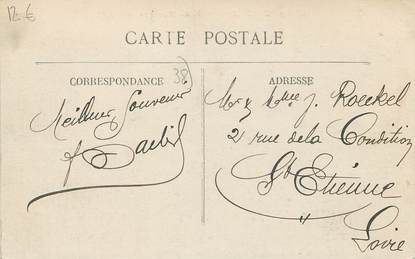 12 €
CARTE POSTALE
CORRESPONDANCE
38
Meilleur Souvenir
ADRESSE
Mr & Mme J. Roeckel
21 rue de la Condition
St Etienne
"
Loire